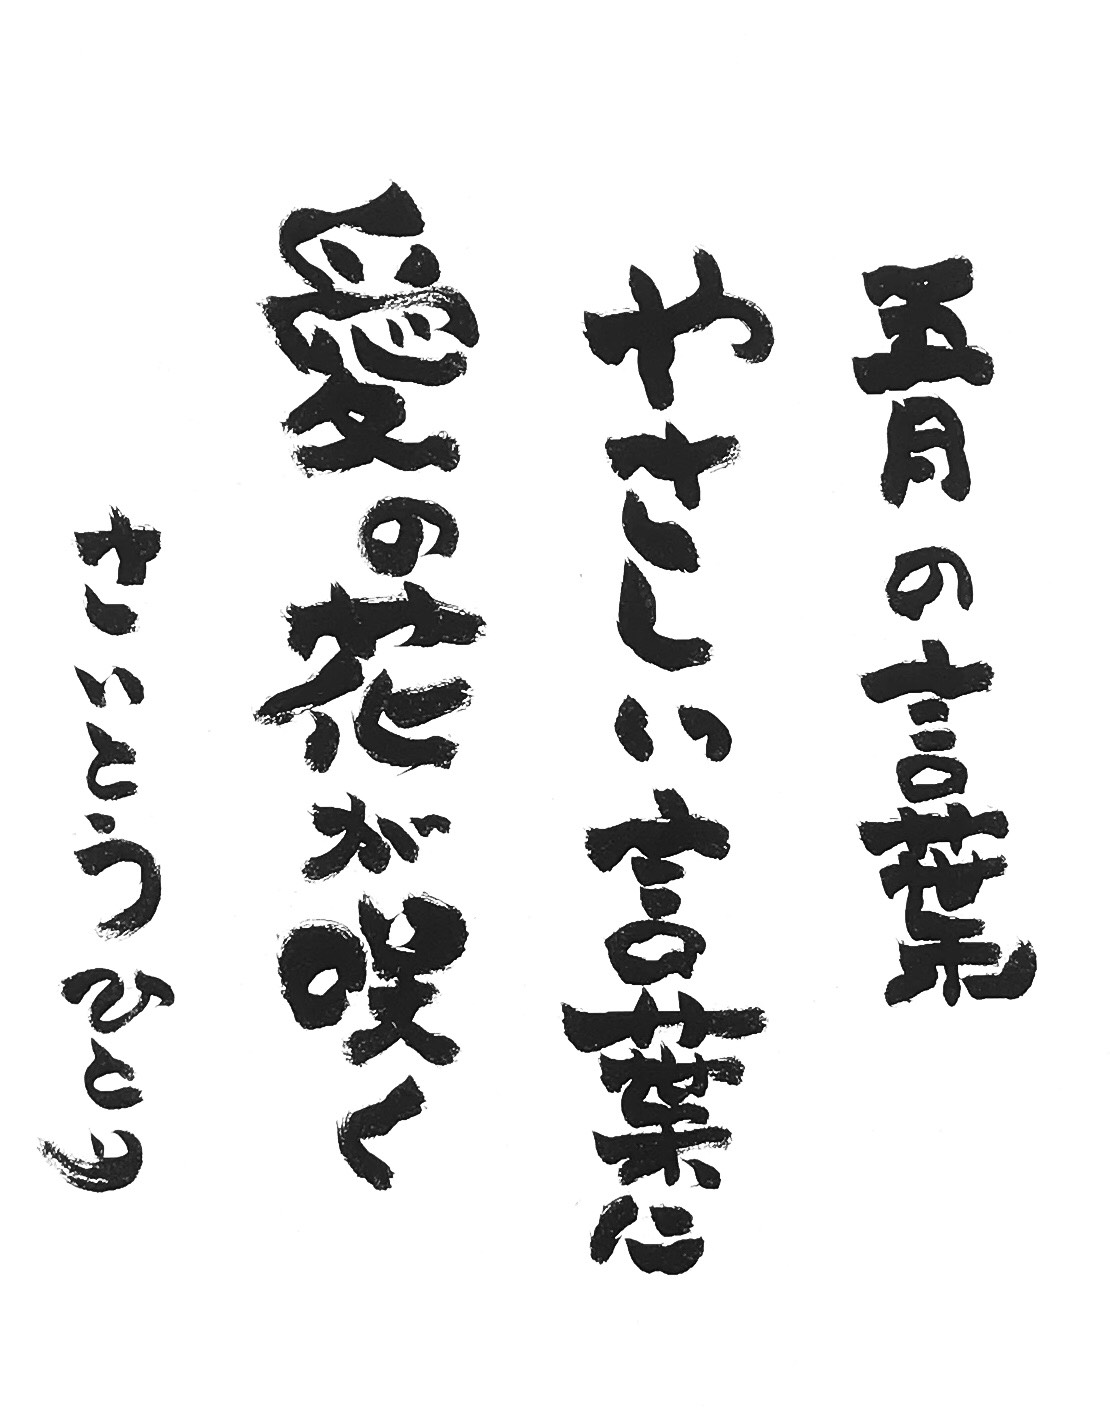 五月の言葉
やさしい言葉に
愛の花が咲く
さいとうひとり